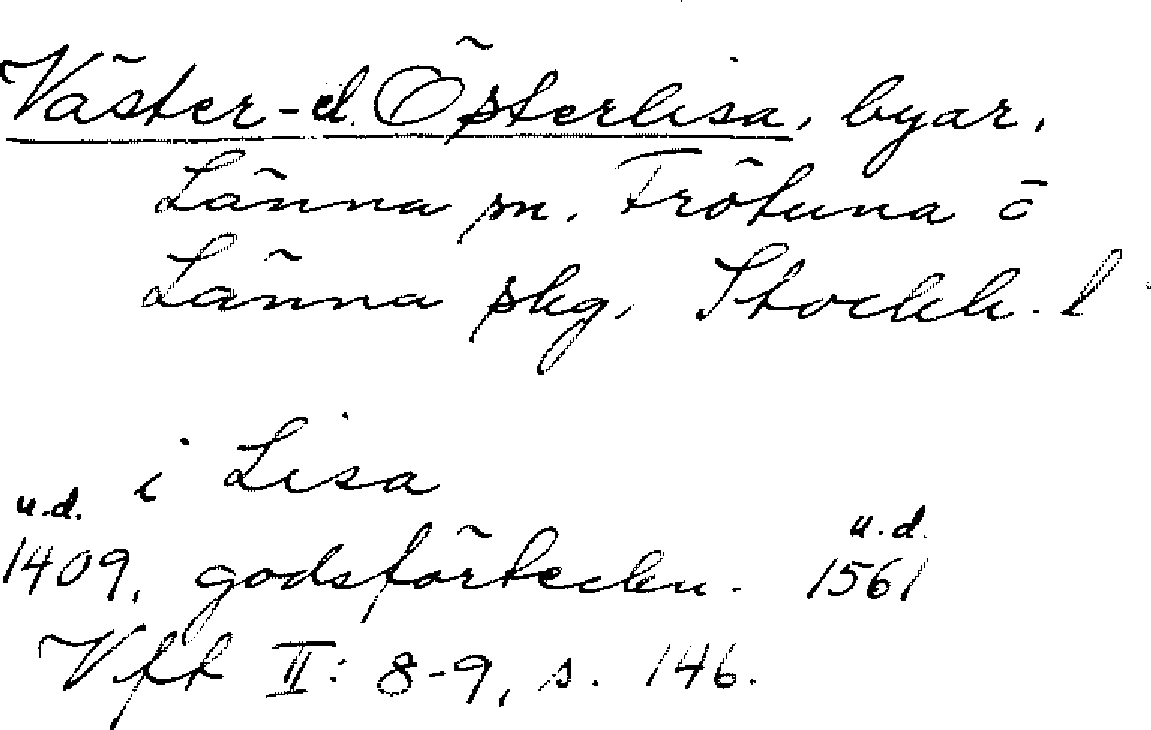 Väster- el. Österlisa, byar,
Länna sn. Frötuna o
Länna skg, Stockh. l
i Lisa
u.d. u.d.
1409, godsförteckn. 1561
Vft II: 8-9, s. 146.